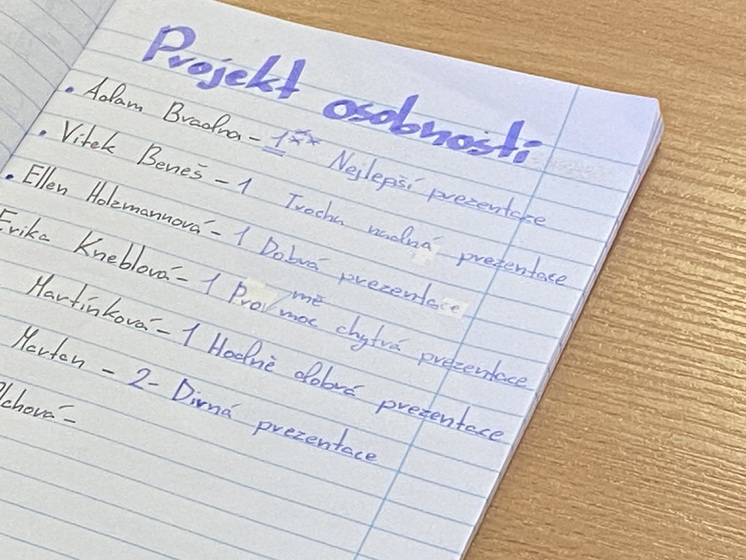 Projekt osobnosti
• Adam Bradna - 1*** Nejlepší prezentace
• Vítek Beneš - 1 Trochu nudná prezentace
• Ellen Holzmannová - 1 Dobrá prezentace
Erika Kneblová - 1 Pro mě moc chytrá prezentace
Martínková - 1 Hodně dobrá prezentace
- 2- Divná prezentace